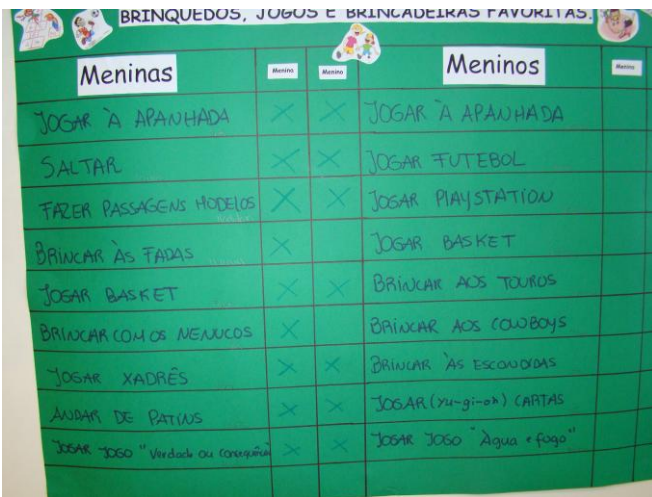 BRINQUEDOS, JOGOS E BRINCADEIRAS FAVORITAS.
Meninas Menino Menino Meninos Menino
JOGAR À APANHADA X X JOGAR À APANHADA
SALTAR X X JOGAR FUTEBOL
FAZER PASSAGENS MODELOS X X JOGAR PLAYSTATION
BRINCAR ÀS FADAS X JOGAR BASKET
JOGAR BASKET X X BRINCAR AOS TOUROS
BRINCAR COM OS NENUCOS X BRINCAR AOS COWBOYS
JOGAR XADRÊS X X BRINCAR ÀS ESCONDIDAS
ANDAR DE PATINS X X JOGAR (Yu-gi-oh) CARTAS
JOGAR JOGO "Verdade ou X X JOGAR JOGO "Água e fogo"